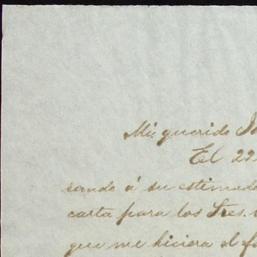 Mi querido
El 22
sando á su estimada
carta para los Sres.
que me hiciera el